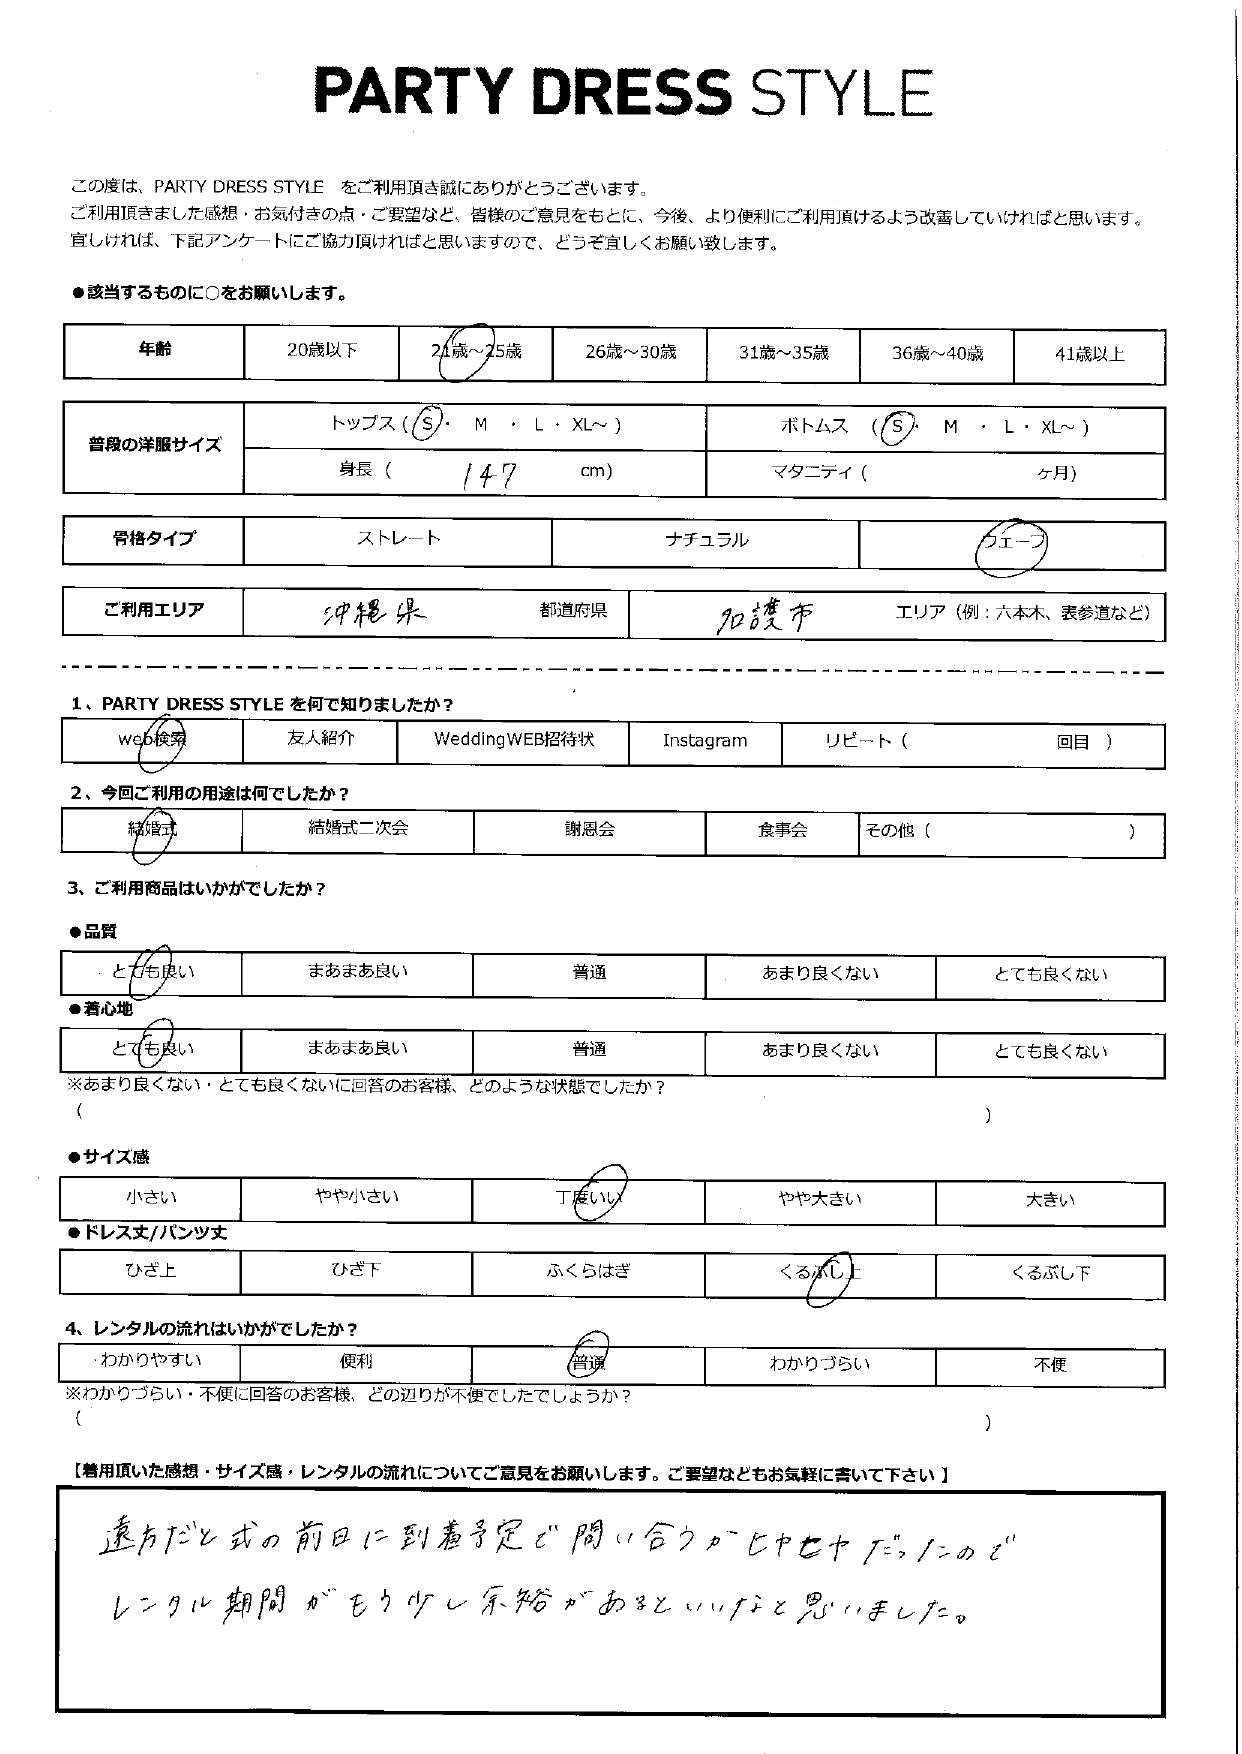 PARTY DRESS STYLE
この度は、PARTY DRESS STYLE をご利用頂き誠にありがとうございます。
ご利用頂きました感想・お気付きの点・ご要望など、皆様のご意見をもとに、今後、より便利にご利用頂けるよう改善していければと思います。
宜しければ、下記アンケートにご協力頂ければと思いますので、どうぞ宜しくお願い致します。
●該当するものに○をお願いします。
年齢 20歳以下 21歳～25歳 26歳～30歳 31歳～35歳 36歳～40歳 41歳以上
普段の洋服サイズ トップス（ S ・ M ・ L ・ XL～ ） ボトムス （ S ・ M ・ L ・ XL～ ）
身長（ 147 cm） マタニティ（ ヶ月）
骨格タイプ ストレート ナチュラル ウェーブ
ご利用エリア 沖縄県 都道府県 名護市 エリア（例：六本木、表参道など）
1、PARTY DRESS STYLE を何で知りましたか？
web検索 友人紹介 WeddingWEB招待状 Instagram リピート（ 回目 ）
2、今回ご利用の用途は何でしたか？
結婚式 結婚式二次会 謝恩会 食事会 その他（ ）
3、ご利用商品はいかがでしたか？
●品質
とても良い まあまあ良い 普通 あまり良くない とても良くない
●着心地
とても良い まあまあ良い 普通 あまり良くない とても良くない
※あまり良くない・とても良くないに回答のお客様、どのような状態でしたか？
（ ）
●サイズ感
小さい やや小さい 丁度いい やや大きい 大きい
●ドレス丈/パンツ丈
ひざ上 ひざ下 ふくらはぎ くるぶし上 くるぶし下
4、レンタルの流れはいかがでしたか？
わかりやすい 便利 普通 わかりづらい 不便
※わかりづらい・不便に回答のお客様、どの辺りが不便でしたでしょうか？
（ ）
【着用頂いた感想・サイズ感・レンタルの流れについてご意見をお願いします。ご要望などもお気軽に書いて下さい 】
遠方だと式の前日に到着予定で間い合うかヒヤヒヤだったので
レンタル期間がもう少し余裕があるといいなと思いました。